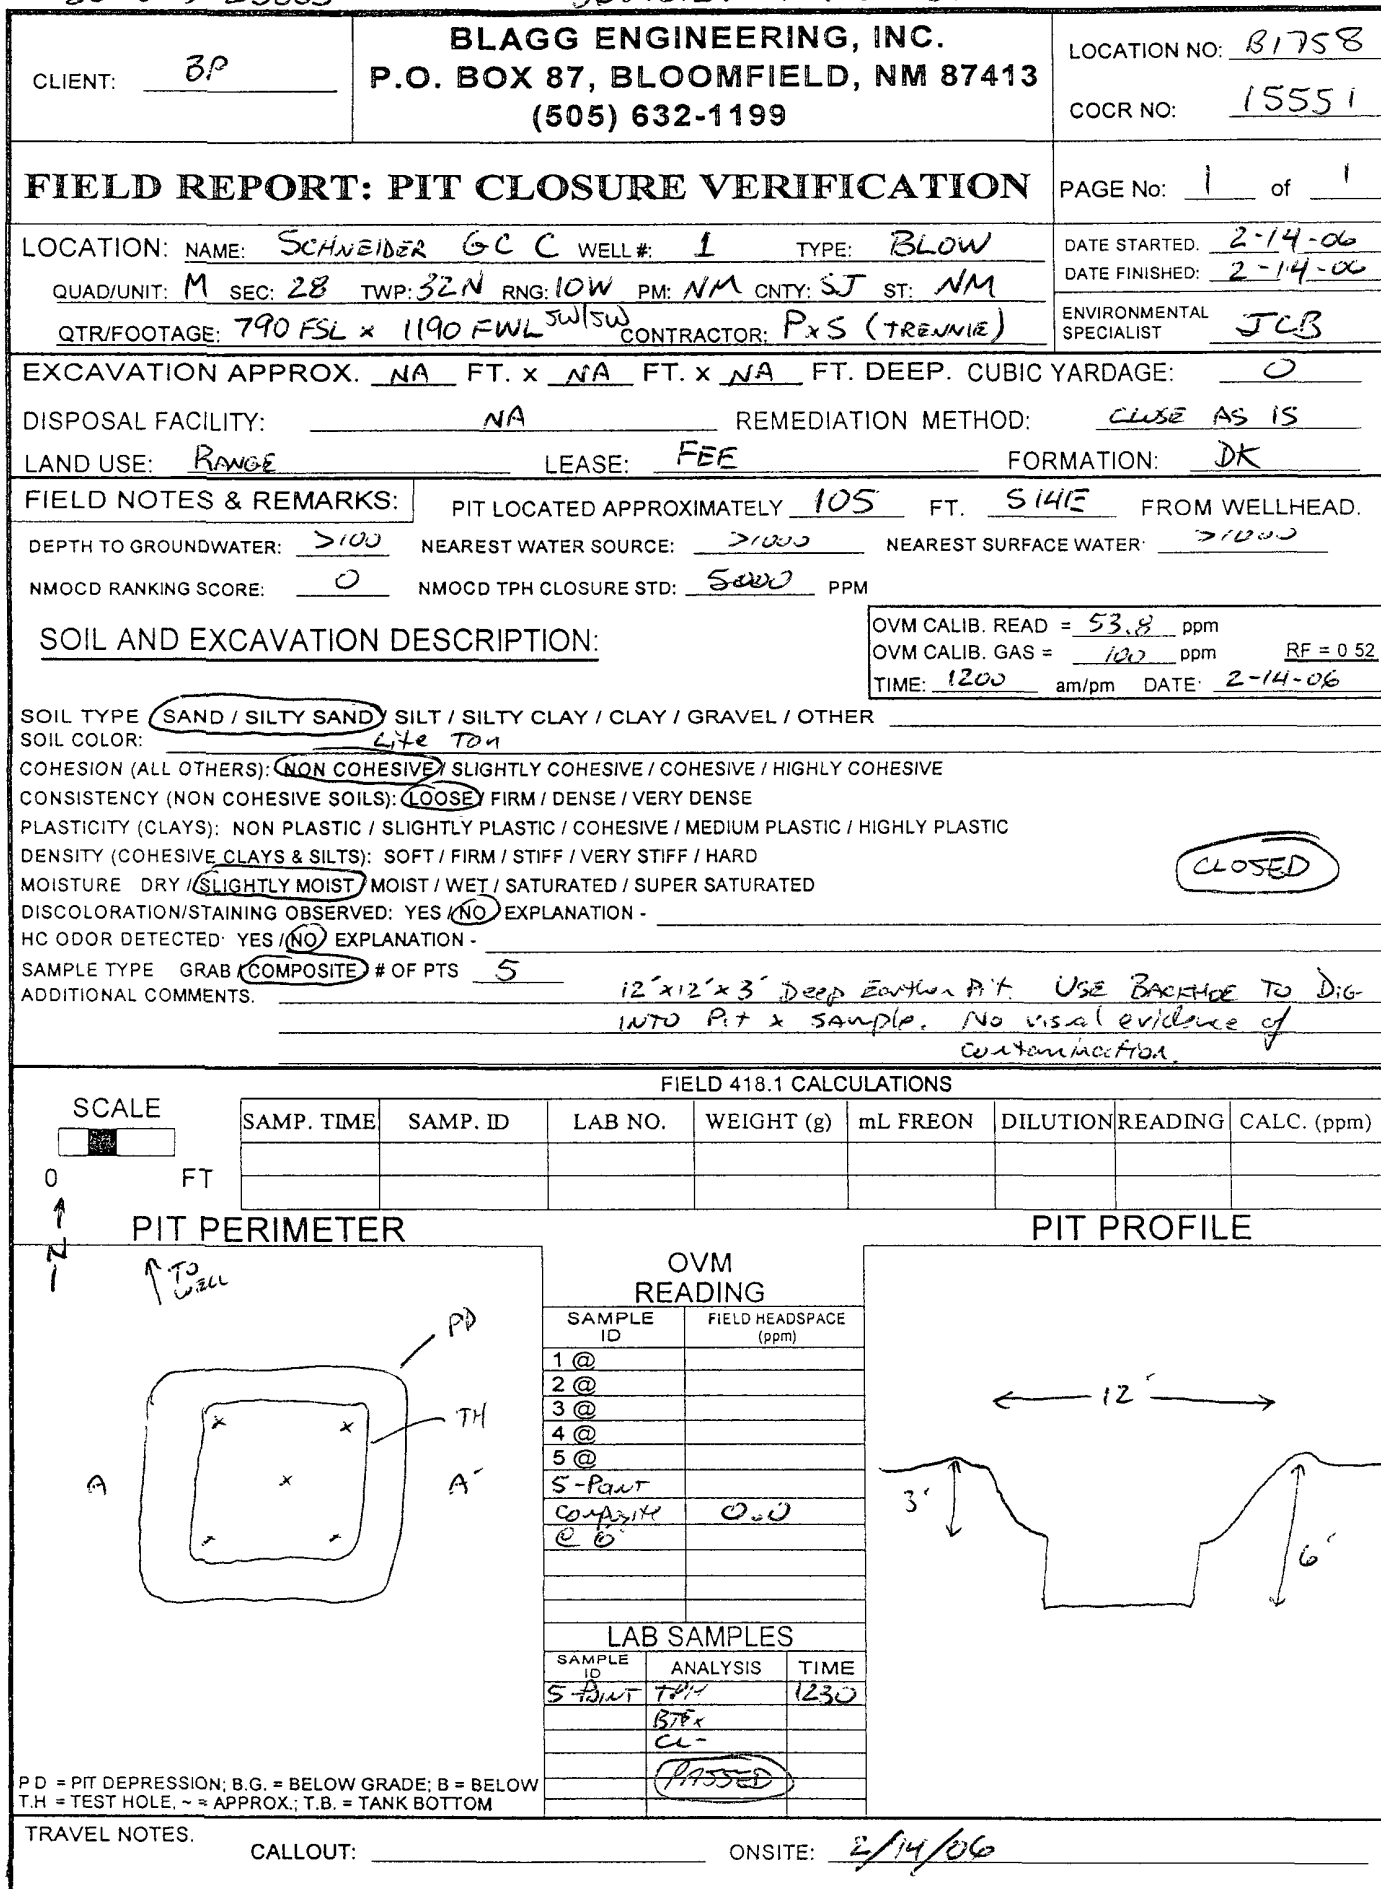 BLAGG ENGINEERING, INC.
P.O. BOX 87, BLOOMFIELD, NM 87413
(505) 632-1199
CLIENT: BP
LOCATION NO: B1758
COCR NO: 15551
FIELD REPORT: PIT CLOSURE VERIFICATION
PAGE No: 1 of 1
LOCATION: NAME: SCHNEIDER GC C WELL #: 1 TYPE: BLOW
QUAD/UNIT: M SEC: 28 TWP: 32N RNG: 10W PM: NM CNTY: SJ ST: NM
QTR/FOOTAGE: 790 FSL x 1190 FWL SW/SW CONTRACTOR: PxS (TRENNIE)
DATE STARTED. 2-14-06
DATE FINISHED: 2-14-06
ENVIRONMENTAL SPECIALIST JCB
EXCAVATION APPROX. NA FT. x NA FT. x NA FT. DEEP. CUBIC YARDAGE: 0
DISPOSAL FACILITY: NA REMEDIATION METHOD: CLOSE AS IS
LAND USE: RANGE LEASE: FEE FORMATION: DK
FIELD NOTES & REMARKS: PIT LOCATED APPROXIMATELY 105 FT. S14E FROM WELLHEAD.
DEPTH TO GROUNDWATER: >100 NEAREST WATER SOURCE: >1000 NEAREST SURFACE WATER: >1000
NMOCD RANKING SCORE: 0 NMOCD TPH CLOSURE STD: 5000 PPM
SOIL AND EXCAVATION DESCRIPTION:
OVM CALIB. READ = 53.8 ppm
OVM CALIB. GAS = 100 ppm RF = 0 52
TIME: 1200 am/pm DATE: 2-14-06
SOIL TYPE SAND / SILTY SAND / SILT / SILTY CLAY / CLAY / GRAVEL / OTHER
SOIL COLOR: Lite Tan
COHESION (ALL OTHERS): NON COHESIVE / SLIGHTLY COHESIVE / COHESIVE / HIGHLY COHESIVE
CONSISTENCY (NON COHESIVE SOILS): LOOSE / FIRM / DENSE / VERY DENSE
PLASTICITY (CLAYS): NON PLASTIC / SLIGHTLY PLASTIC / COHESIVE / MEDIUM PLASTIC / HIGHLY PLASTIC
DENSITY (COHESIVE CLAYS & SILTS): SOFT / FIRM / STIFF / VERY STIFF / HARD
MOISTURE DRY / SLIGHTLY MOIST / MOIST / WET / SATURATED / SUPER SATURATED
CLOSED
DISCOLORATION/STAINING OBSERVED: YES / NO EXPLANATION -
HC ODOR DETECTED: YES / NO EXPLANATION -
SAMPLE TYPE GRAB / COMPOSITE # OF PTS 5
ADDITIONAL COMMENTS. 12'x12'x3' Deep Earthen Pit. USE BACKHOE TO DIG
INTO Pit & SAMPLE. No visual evidence of
contamination.
FIELD 418.1 CALCULATIONS
SCALE
0 FT
SAMP. TIME SAMP. ID LAB NO. WEIGHT (g) mL FREON DILUTION READING CALC. (ppm)
N
PIT PERIMETER
TO WELL
PD
TH
A A'
OVM
READING
SAMPLE ID FIELD HEADSPACE (ppm)
1 @
2 @
3 @
4 @
5 @
5-Point
Composite 0.0
@ 6'
LAB SAMPLES
SAMPLE ID ANALYSIS TIME
5-POINT TPH 1230
BTEX
CL-
PASSED
PIT PROFILE
12'
3'
6'
P D = PIT DEPRESSION; B.G. = BELOW GRADE; B = BELOW
T.H = TEST HOLE, ~ = APPROX.; T.B. = TANK BOTTOM
TRAVEL NOTES.
CALLOUT: ONSITE: 2/14/06